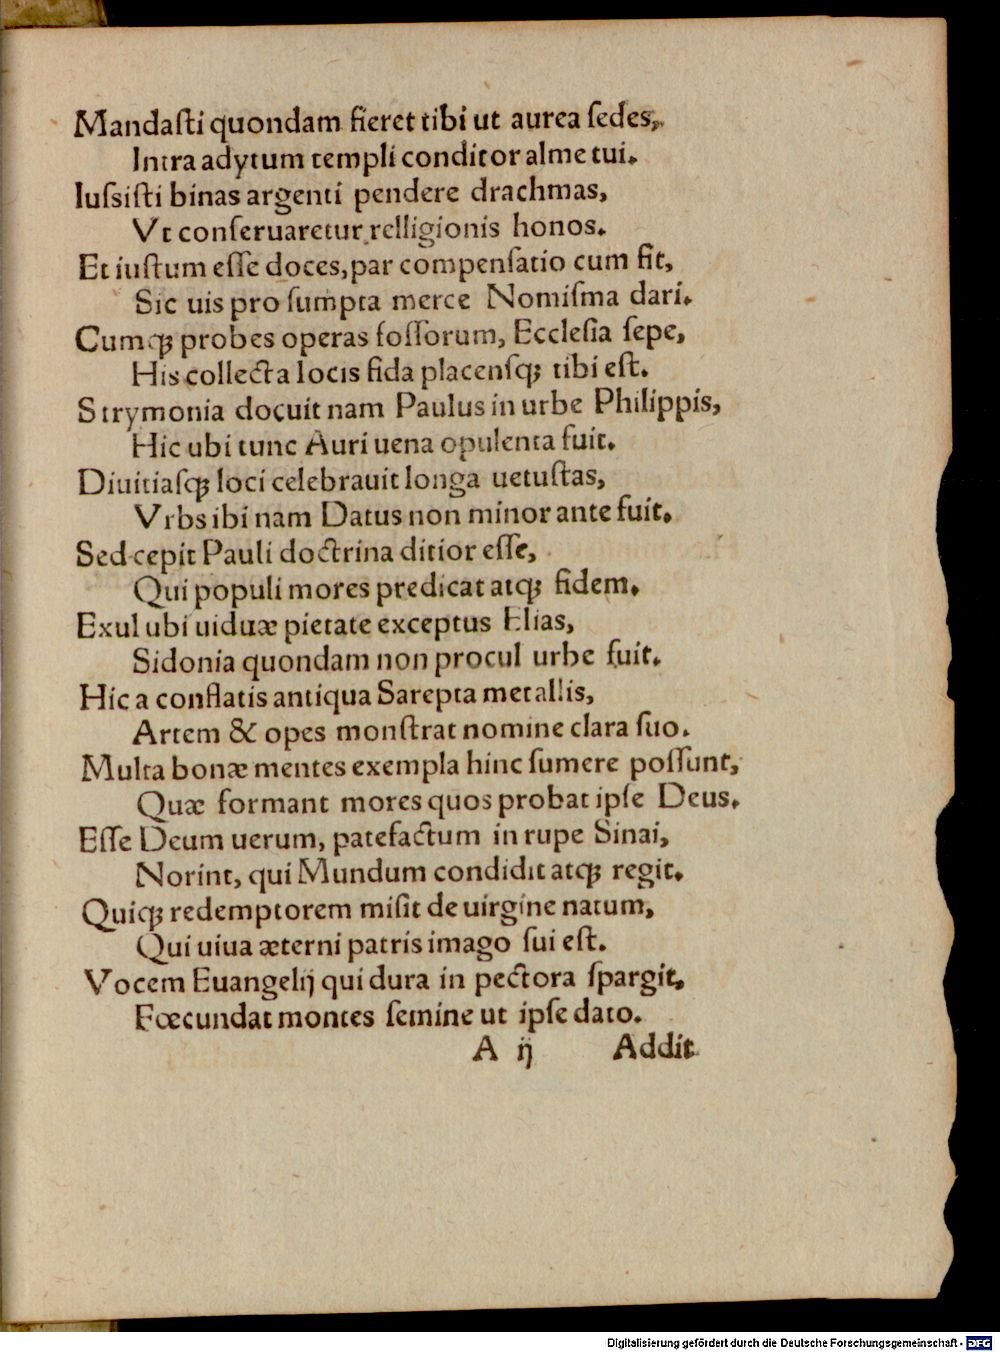 Mandaſti quondam fieret tibi ut aurea ſedes,
Intra adytum templi conditor alme tui.
Iuſsiſti binas argenti pendere drachmas,
Vt conſeruaretur relligionis honos.
Et iuſtum eſſe doces, par compenſatio cum ſit,
Sic uis pro ſumpta merce Nomiſma dari.
Cumqꝫ probes operas foſſorum, Eccleſia ſepe,
His collecta locis fida placenſqꝫ tibi eſt.
Strymonia docuit nam Paulus in urbe Philippis,
Hic ubi tunc Auri uena opulenta fuit.
Diuitiaſqꝫ loci celebrauit longa uetuſtas,
Vrbs ibi nam Datus non minor ante fuit.
Sed cepit Pauli doctrina ditior eſſe,
Qui populi mores predicat atqꝫ fidem.
Exul ubi uiduæ pietate exceptus Elias,
Sidonia quondam non procul urbe fuit.
Hic a conflatis antiqua Sarepta metallis,
Artem & opes monſtrat nomine clara ſuo.
Multa bonæ mentes exempla hinc ſumere poſſunt,
Quæ formant mores quos probat ipſe Deus.
Eſſe Deum uerum, patefactum in rupe Sinai,
Norint, qui Mundum condidit atqꝫ regit.
Quiqꝫ redemptorem miſit de uirgine natum,
Qui uiua æterni patris imago ſui eſt.
Vocem Euangelij qui dura in pectora ſpargit,
Fœcundat montes ſemine ut ipſe dato.
A ij Addit
Digitalisierung gefördert durch die Deutsche Forschungsgemeinschaft - DFG